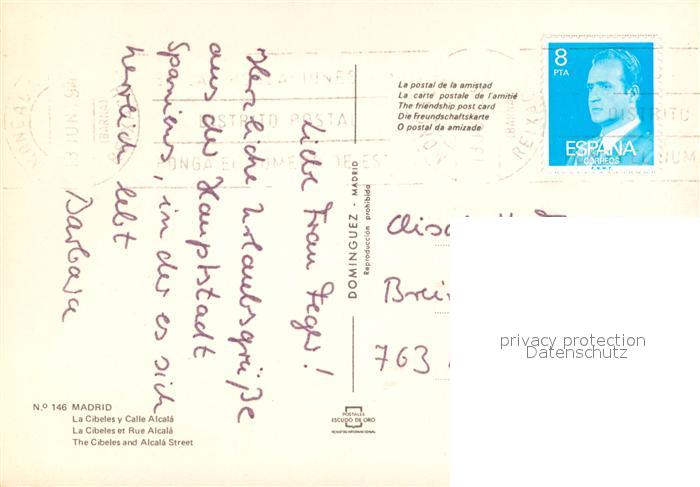 Liebe Frau Feger!
Herzliche Urlaubsgrüße
aus der Hauptstadt
Spaniens, in der es sich
herrlich lebt
Barbara
8
PTA
ESPAÑA
CORREOS
F.N.M.T.
DISTRITO POSTAL
La postal de la amistad
La carte postale de l'amitié
The friendship post card
Die Freundschaftskarte
O postal da amizade
DOMINGUEZ - MADRID
Reproducción prohibida
Brei
763
privacy protection
Datenschutz
N.º 146 MADRID
La Cibeles y Calle Alcalá
La Cibeles et Rue Alcalá
The Cibeles and Alcalá Street
POSTALES
ESCUDO DE ORO